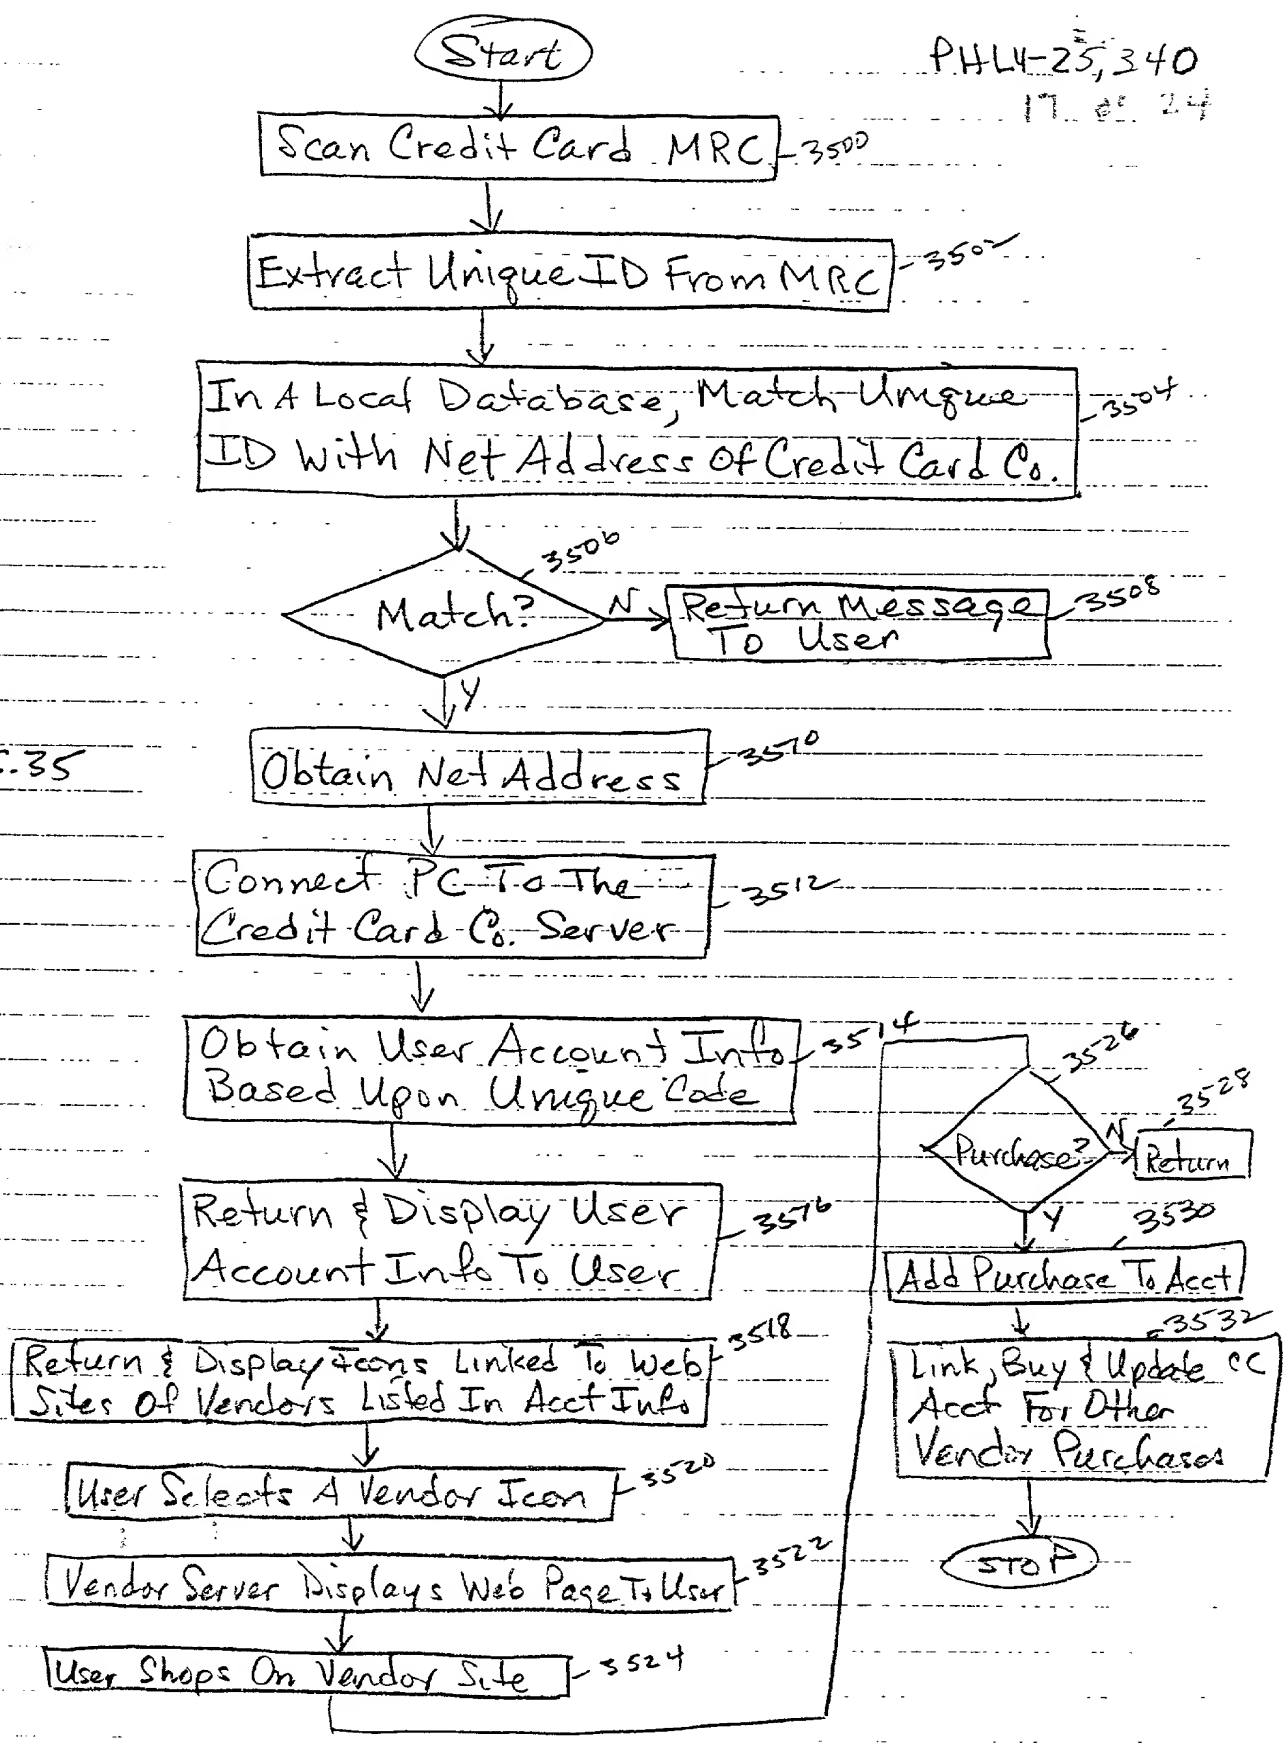 Start
PHL4-25,340
17 of 24
Scan Credit Card MRC
3500
Extract Unique ID From MRC
3502
In A Local Database, Match Unique
ID With Net Address Of Credit Card Co.
3504
Match?
3506
N
Return Message
To User
3508
Y
.35
Obtain Net Address
3510
Connect PC To The
Credit Card Co. Server
3512
Obtain User Account Info
Based Upon Unique Code
3514
Return & Display User
Account Info To User
3516
Return & Display Icons Linked To Web
Sites Of Vendors Listed In Acct Info
3518
User Selects A Vendor Icon
3520
Vendor Server Displays Web Page To User
3522
User Shops On Vendor Site
3524
Purchase?
3526
N
Return
3528
Y
Add Purchase To Acct
3530
Link, Buy & Update CC
Acct For Other
Vendor Purchases
3532
STOP